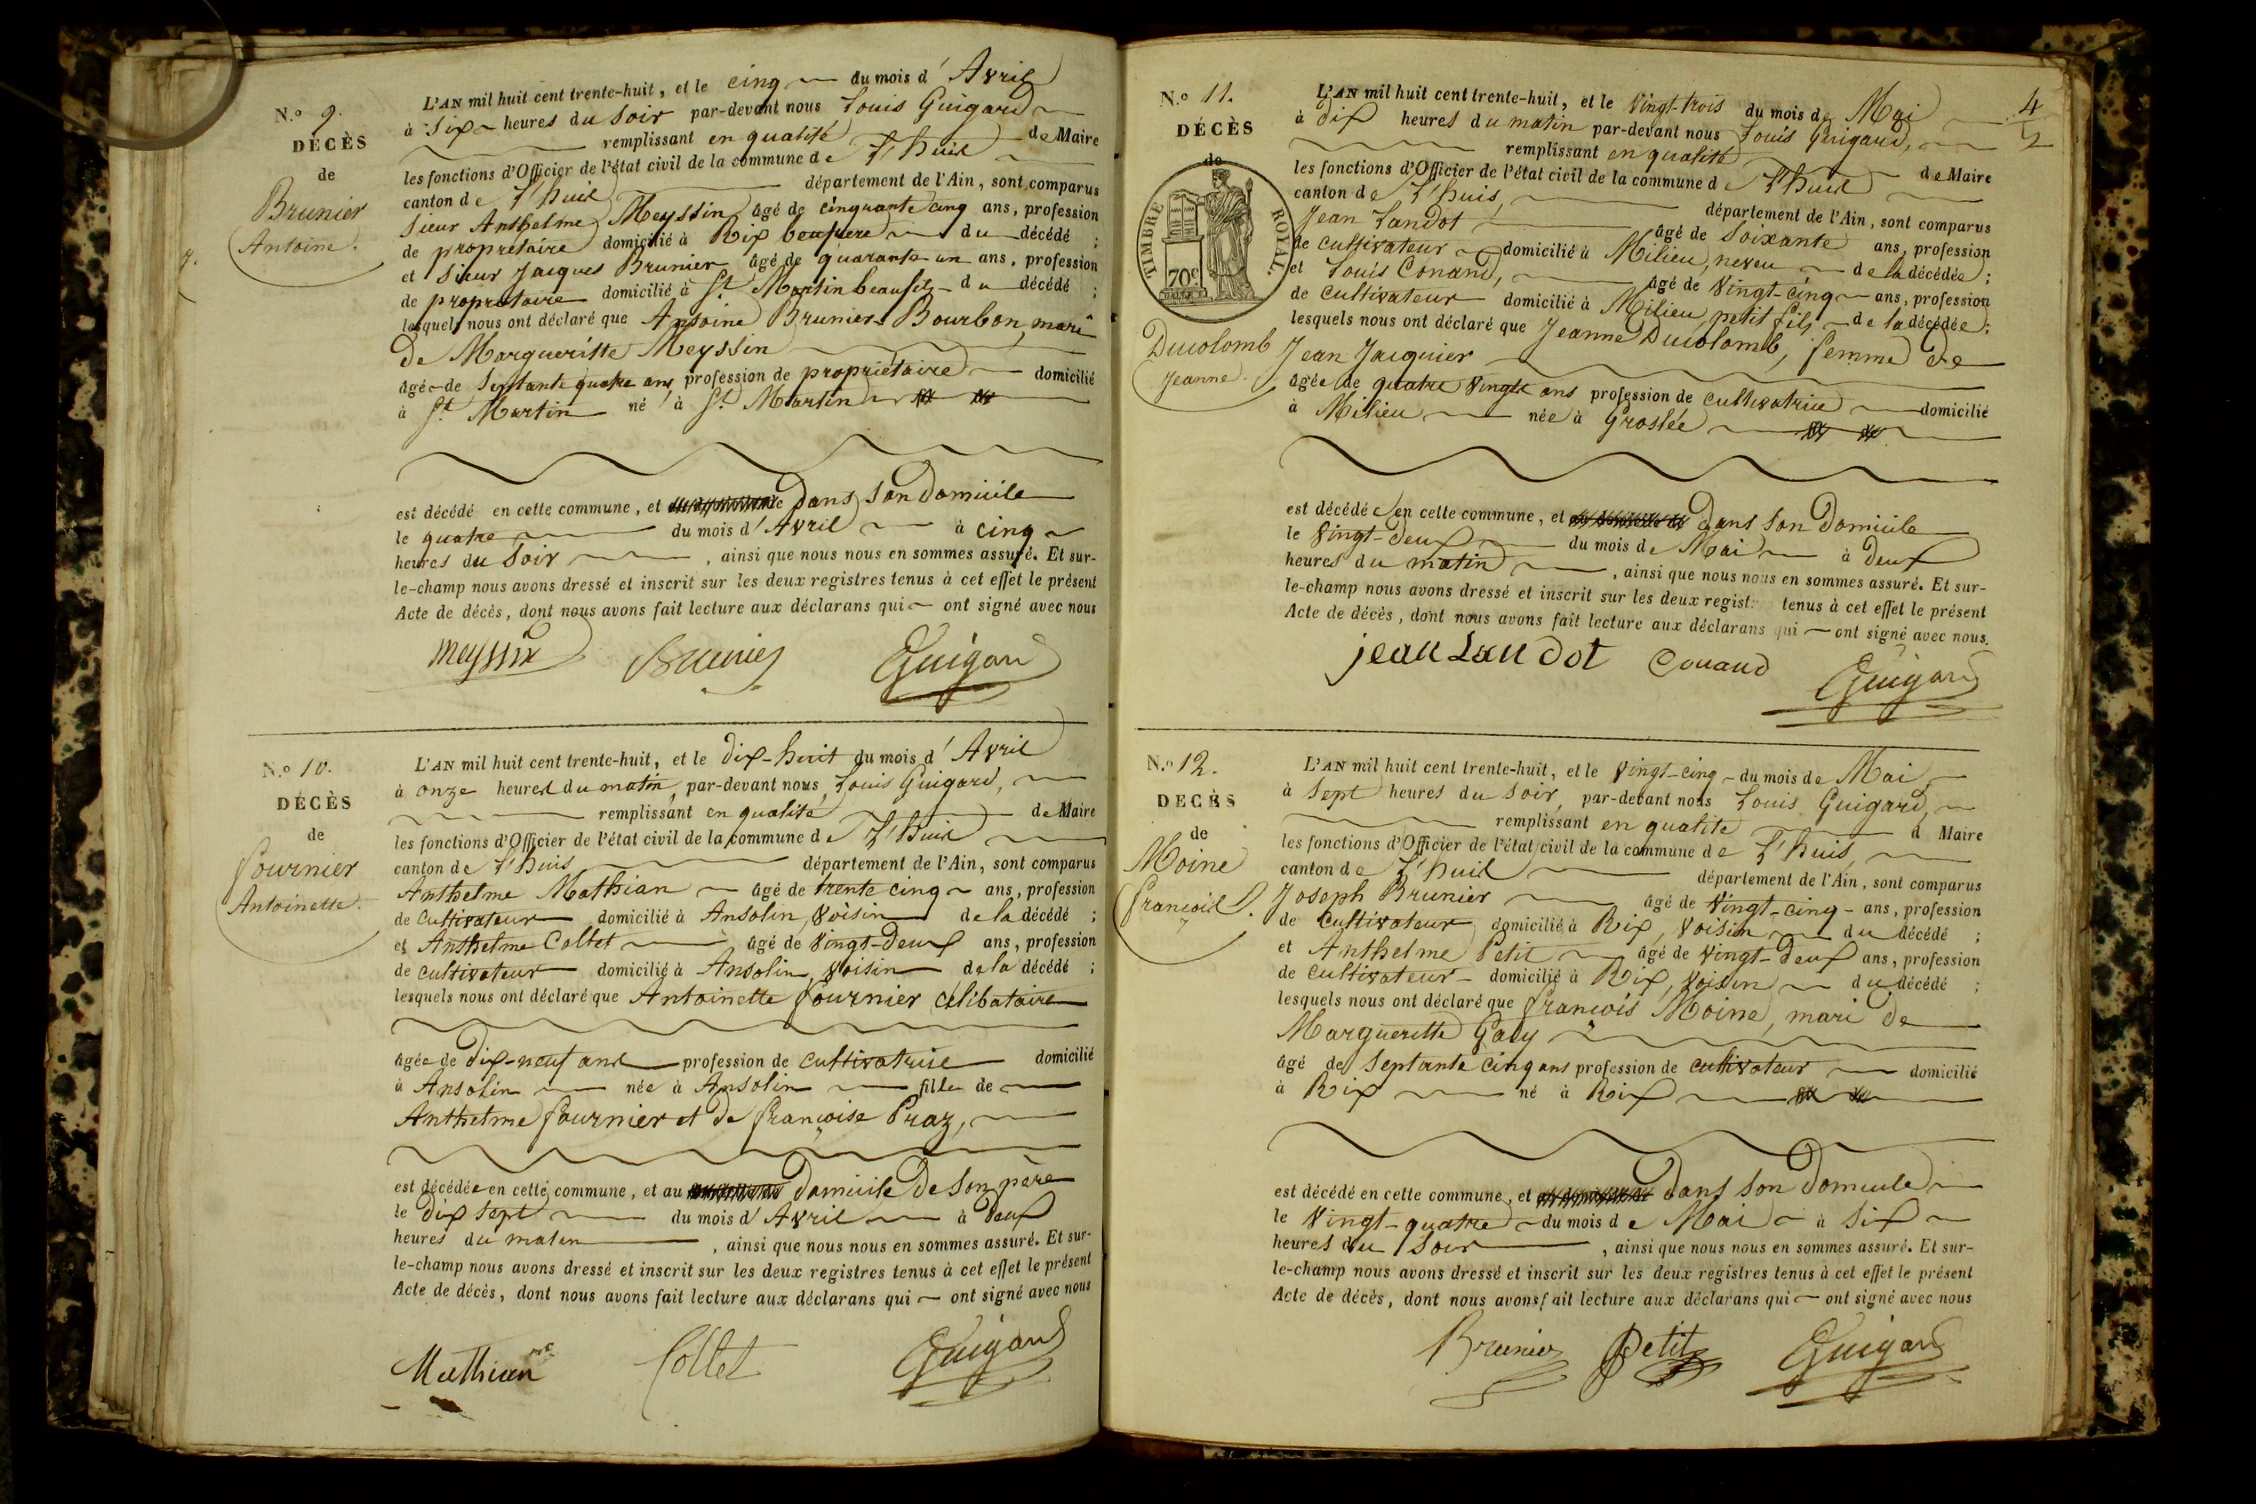 N.º 9.
DÉCÈS
de
Brunier
Antoine.
L'AN mil huit cent trente-huit, et le cinq du mois d'Avril
à Six heures du soir par-devant nous Louis Guigard
remplissant en qualité de Maire
les fonctions d'Officier de l'état civil de la commune de L'huis
canton de L'huis département de l'Ain, sont comparus
Sieur Anthelme Meyssin âgé de cinquante cinq ans, profession
de propriétaire domicilié à Rix beaufrere du décédé ;
et Sieur Jacques Brunier âgé de quarante un ans, profession
de propriétaire domicilié à St. Martin beaufils du décédé ;
lesquels nous ont déclaré que Antoine Brunier Bourbon, mari
de Margueritte Meyssin
âgé de Septante quatre ans profession de propriétaire domicilié
à St. Martin né à St. Martin
est décédé en cette commune, et dans son Domicile
le quatre du mois d'Avril à cinq
heures du Soir , ainsi que nous nous en sommes assuré. Et sur-
le-champ nous avons dressé et inscrit sur les deux registres tenus à cet effet le présent
Acte de décès, dont nous avons fait lecture aux déclarans qui ont signé avec nous
Meyssin Brunier Guigard
N.º 10.
DÉCÈS
de
Fournier
Antoinette.
L'AN mil huit cent trente-huit, et le dix-huit du mois d'Avril
à onze heures du matin, par-devant nous Louis Guigard,
remplissant en qualité de Maire
les fonctions d'Officier de l'état civil de la commune de L'huis
canton de L'huis département de l'Ain, sont comparus
Anthelme Mathian âgé de trente cinq ans, profession
de Cultivateur domicilié à Ansolin, Voisin de la décédé ;
et Anthelme Collet âgé de Vingt-Deux ans, profession
de cultivateur domicilié à Ansolin, Voisin de la décédé ;
lesquels nous ont déclaré que Antoinette Fournier célibataire
âgée de Dix-neuf ans profession de cultivatrice domicilié
à Ansolin née à Ansolin fille de
Anthelme Fournier et de Françoise Praz,
est décédée en cette commune, et au Domicile De Son père
le Dix Sept du mois d'Avril à Deux
heures du matin , ainsi que nous nous en sommes assuré. Et sur-
le-champ nous avons dressé et inscrit sur les deux registres tenus à cet effet le présent
Acte de décès, dont nous avons fait lecture aux déclarans qui ont signé avec nous
Mathian Collet Guigard
4
2
N.º 11.
DÉCÈS
de
TIMBRE ROYAL.
70c
Ducolomb
Jeanne.
L'AN mil huit cent trente-huit, et le Vingt-trois du mois de Mai
à dix heures du matin par-devant nous Louis Guigard,
remplissant en qualité de Maire
les fonctions d'Officier de l'état civil de la commune de L'huis
canton de L'huis, département de l'Ain, sont comparus
Jean Landot âgé de Soixante ans, profession
de cultivateur domicilié à Milieu, neveu de la décédée ;
et Louis Conand, âgé de Vingt-cinq ans, profession
de cultivateur domicilié à Milieu, petit fils de la décédée ;
lesquels nous ont déclaré que Jeanne Ducolomb, femme de
Jean Jacquier
âgée de quatre Vingts ans profession de cultivatrice domicilié
à Milieu née à Groslée
est décédée en cette commune, et Dans Son Domicile
le Vingt-Deux du mois de Mai à Deux
heures du matin , ainsi que nous nous en sommes assuré. Et sur-
le-champ nous avons dressé et inscrit sur les deux regist tenus à cet effet le présent
Acte de décès, dont nous avons fait lecture aux déclarans qui ont signé avec nous.
jean Landot Conand Guigard
N.º 12.
DECÈS
de
Moine
François.
L'AN mil huit cent trente-huit, et le Vingt-cinq du mois de Mai
à Sept heures du soir, par-devant nous Louis Guigard,
remplissant en qualité d Maire
les fonctions d'Officier de l'état civil de la commune de L'huis,
canton de L'huis département de l'Ain, sont comparus
Joseph Brunier âgé de Vingt-cinq ans, profession
de cultivateur domicilié à Rix, Voisin du décédé ;
et Anthelme Petit âgé de Vingt-Deux ans, profession
de cultivateur domicilié à Rix, Voisin du décédé ;
lesquels nous ont déclaré que François Moine, mari de
Margueritte Gacy
âgé de Septante cinq ans profession de cultivateur domicilié
à Rix né à Roix
est décédé en cette commune, et dans son Domicile
le Vingt-quatre du mois de Mai à Six
heures du Soir , ainsi que nous nous en sommes assuré. Et sur-
le-champ nous avons dressé et inscrit sur les deux registres tenus à cet effet le présent
Acte de décès, dont nous avons fait lecture aux déclarans qui ont signé avec nous
Brunier Petit Guigard